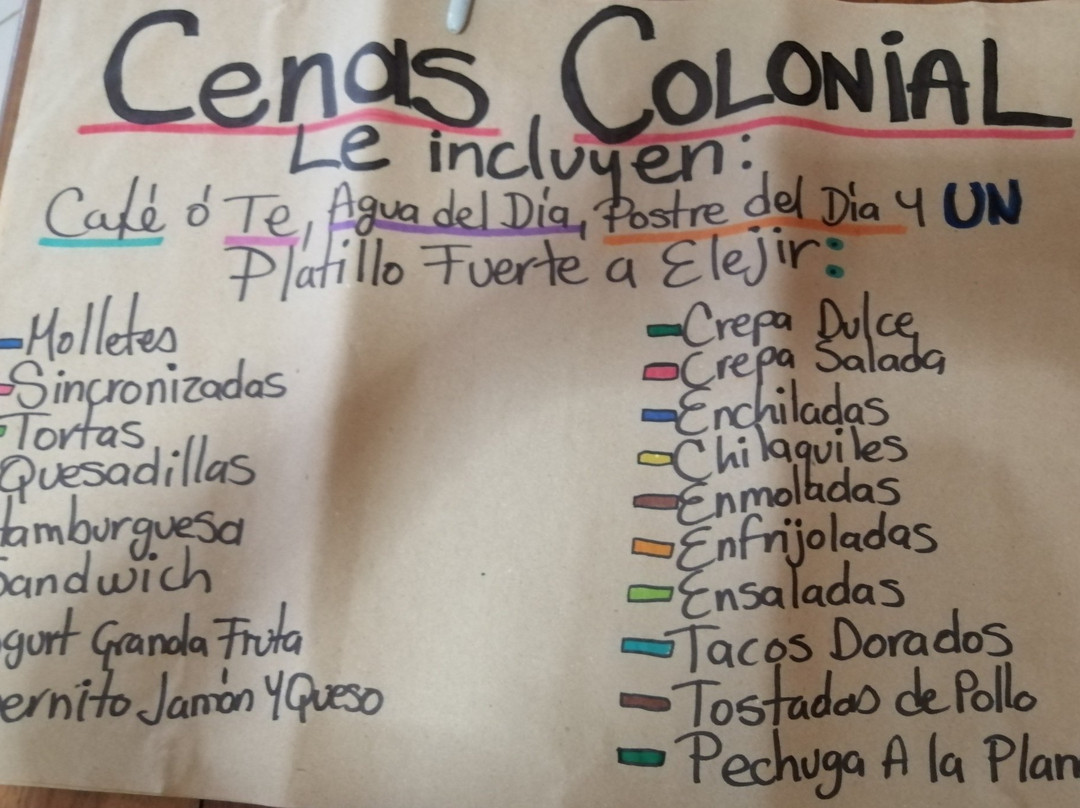 Cenas COLONiAL
Le incluyen:
Café ó Te, Agua del Día, Postre del Día y UN
Platillo Fuerte a Elejir:
-Molletes
-Sincronizadas
-Tortas
Quesadillas
amburguesa
andwich
gurt Granola Fruta
ernito Jamón Y Queso
-Crepa Dulce
-Crepa Salada
-Enchiladas
-Chilaquiles
-Enmoladas
-Enfrijoladas
-Ensaladas
-Tacos Dorados
-Tostadas de Pollo
-Pechuga A la Plan